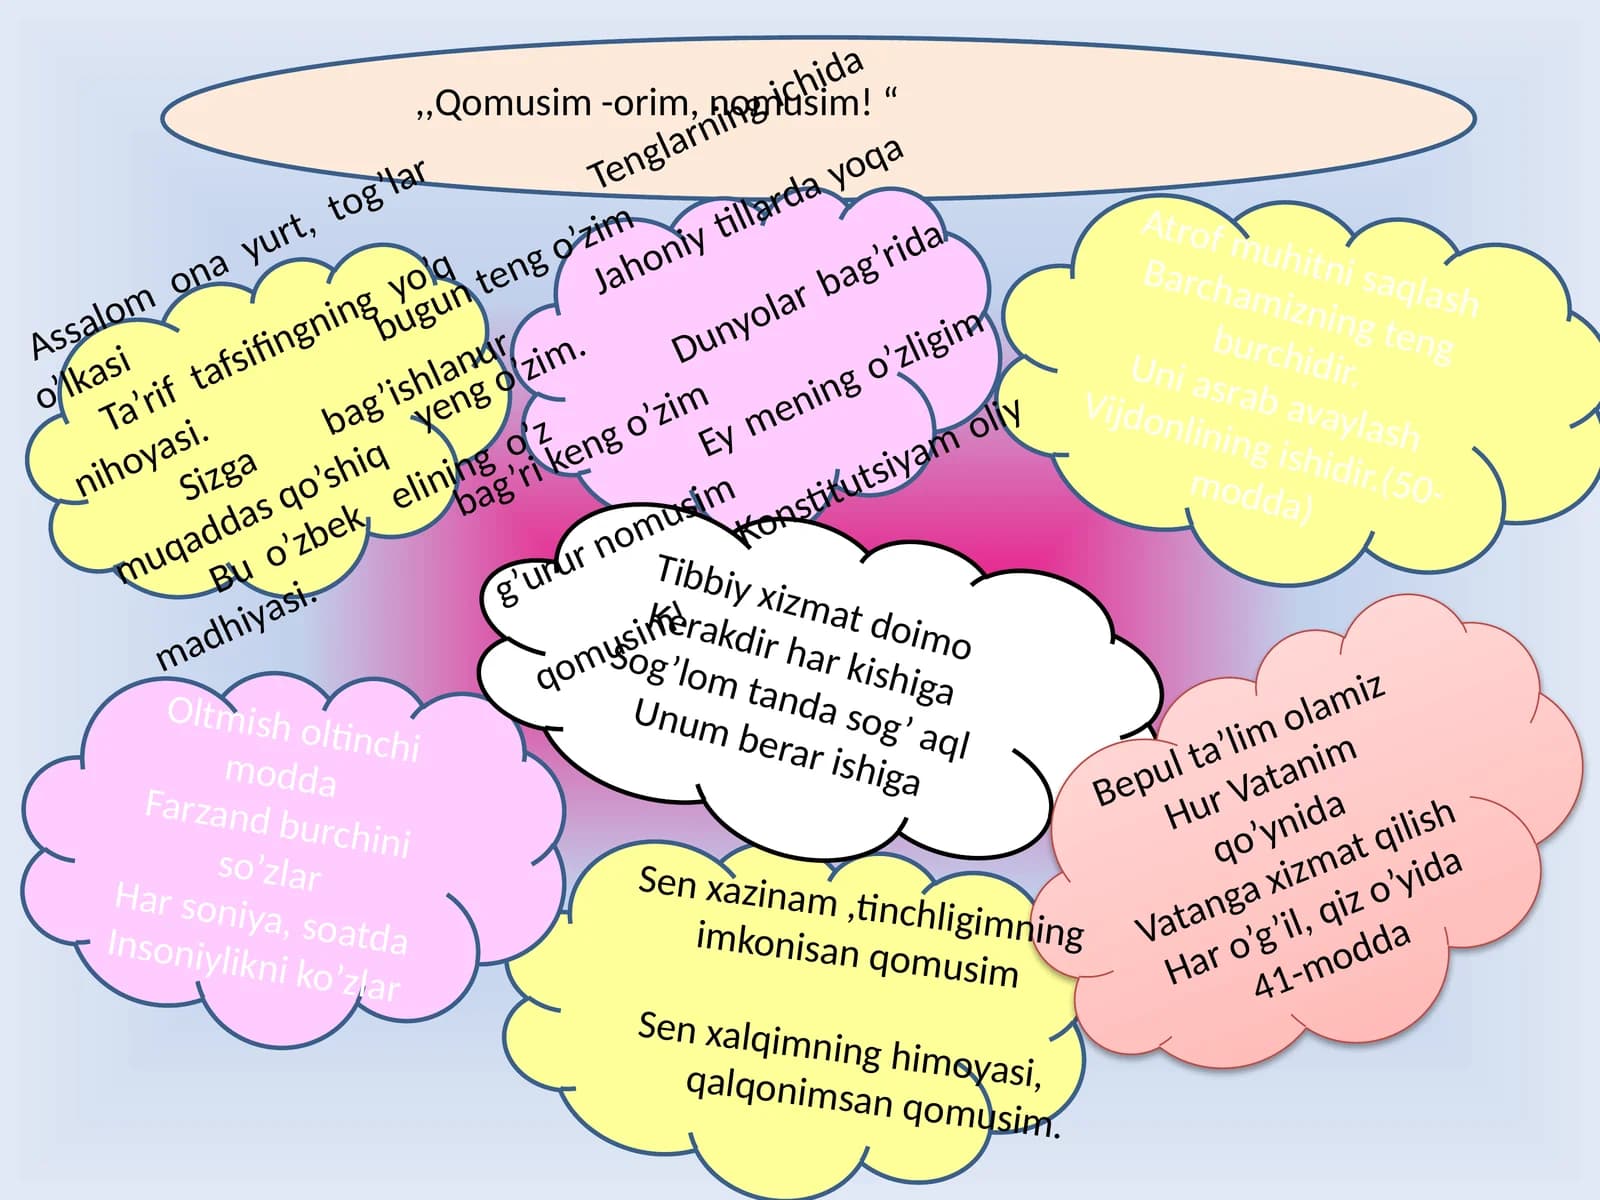 ,,Qomusim -orim, nomusim! “
Assalom ona yurt, tog’lar
o’lkasi
Ta’rif tafsifingning yo’q
nihoyasi.
Sizga bag’ishlanur
muqaddas qo’shiq
Bu o’zbek elining o’z
madhiyasi.
Tenglarning ichida
bugun teng o’zim
Jahoniy tillarda yoqa
yeng o’zim.
Dunyolar bag’rida
bag’ri keng o’zim
Ey mening o’zligim
g’urur nomusim
Konstitutsiyam oliy
qomusim!
Atrof muhitni saqlash
Barchamizning teng
burchidir.
Uni asrab avaylash
Vijdonlining ishidir.(50-
modda)
Tibbiy xizmat doimo
Kerakdir har kishiga
Sog’lom tanda sog’ aql
Unum berar ishiga
Oltmish oltinchi
modda
Farzand burchini
so’zlar
Har soniya, soatda
Insoniylikni ko’zlar
Sen xazinam ,tinchligimning
imkonisan qomusim
Sen xalqimning himoyasi,
qalqonimsan qomusim.
Bepul ta’lim olamiz
Hur Vatanim
qo’ynida
Vatanga xizmat qilish
Har o’g’il, qiz o’yida
41-modda